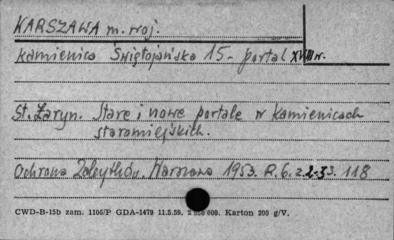 WARSZAWA m. woj.
Kamienica Świętojańska 15 - portal XVIII w.
St. Żaryn. Stare i nowe portale w kamienicach
staromiejskich.
Ochrona Zabytków. Warszawa 1953. R. 6. z. 2-3 s. 118
CWD-B-15b zam. 1106/P GDA-1479 11.5.59. 2 000 000. Karton 200 g/V.